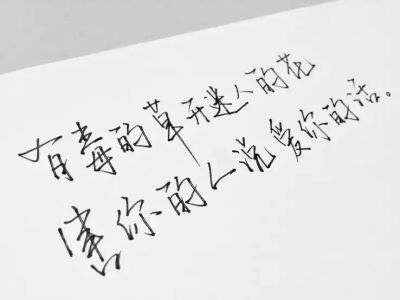 有毒的草开迷人的花
害你的人说爱你的话。